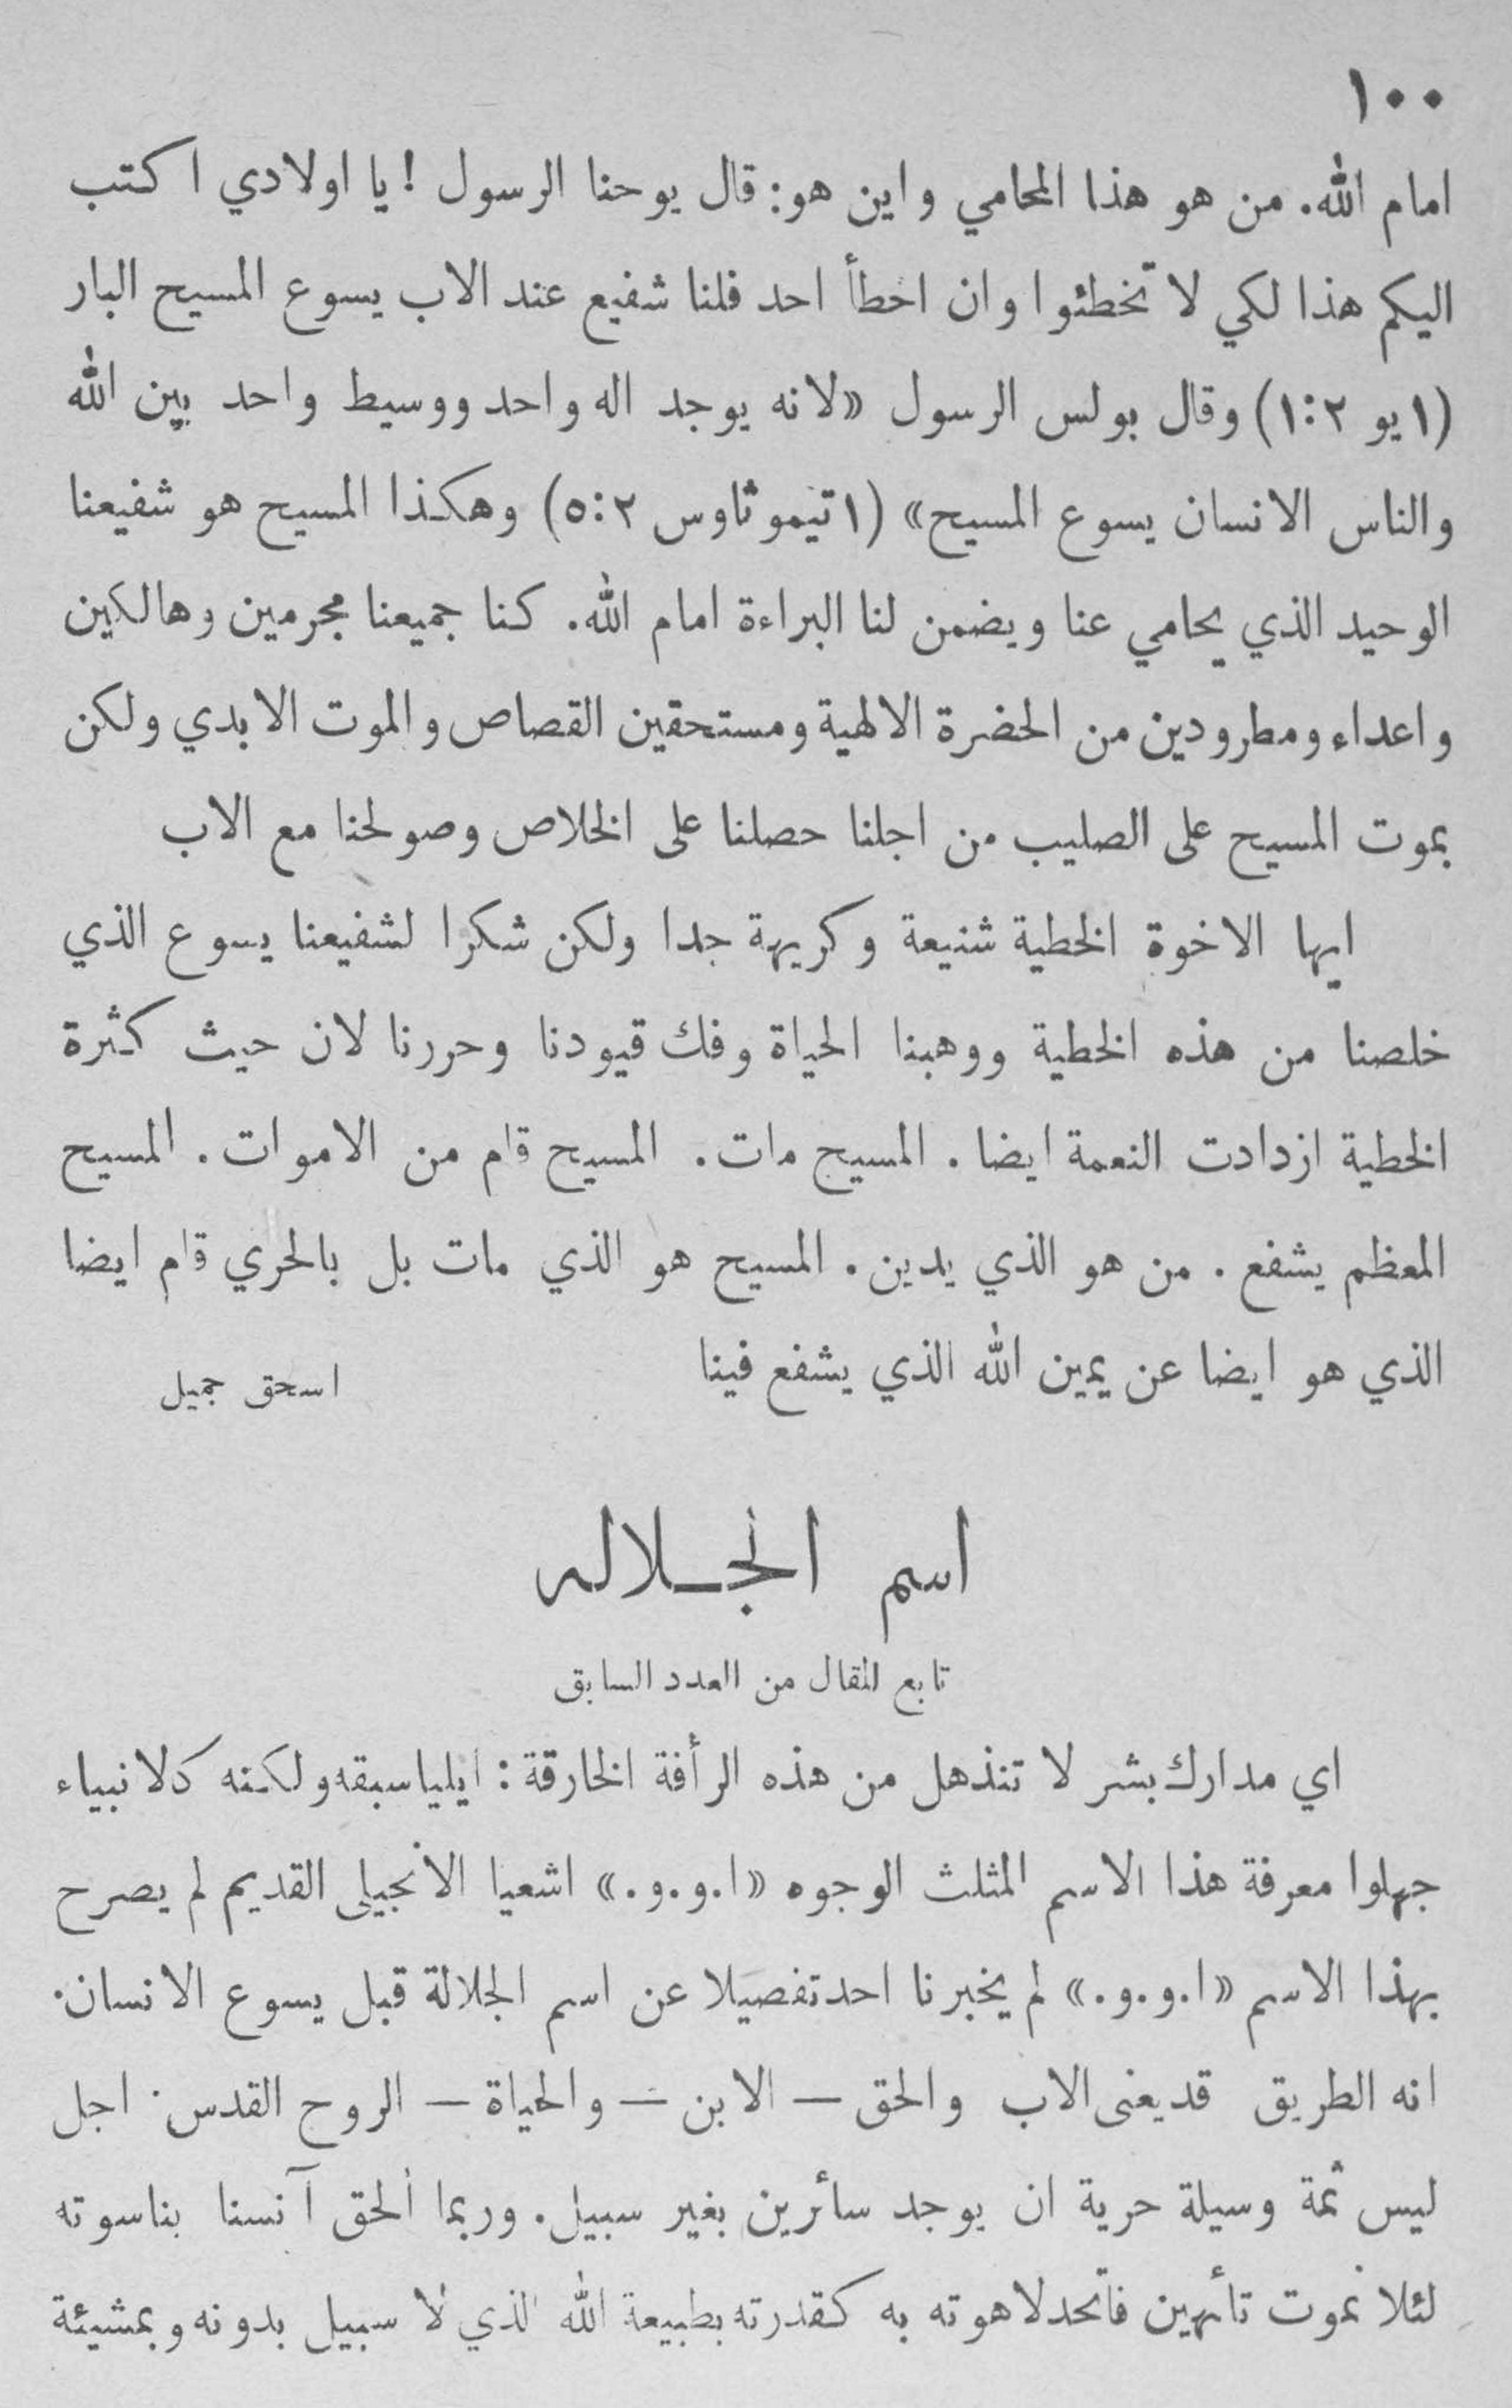 ١٠٠
امام الله. من هو هذا المحامي واين هو: قال يوحنا الرسول ! يا اولادي اكتب
اليكم هذا لكي لا تخطئوا وان اخطأ احد فلنا شفيع عند الاب يسوع المسيح البار
(١ يو ٢:١) وقال بولس الرسول «لانه يوجد اله واحد ووسيط واحد بين الله
والناس الانسان يسوع المسيح» (١ تيموثاوس ٢:٥) وهكذا المسيح هو شفيعنا
الوحيد الذي يحامي عنا ويضمن لنا البراءة امام الله. كنا جميعنا مجرمين وهالكين
واعداء ومطرودين من الحضرة الالهية ومستحقين القصاص والموت الابدي ولكن
بموت المسيح على الصليب من اجلنا حصلنا على الخلاص وصولحنا مع الاب
ايها الاخوة الخطية شنيعة وكريهة جدا ولكن شكرا لشفيعنا يسوع الذي
خلصنا من هذه الخطية ووهبنا الحياة وفك قيودنا وحررنا لان حيث كثرة
الخطية ازدادت النعمة ايضا. المسيح مات. المسيح قام من الاموات. المسيح
المعظم يشفع. من هو الذي يدين. المسيح هو الذي مات بل بالحري قام ايضا
الذي هو ايضا عن يمين الله الذي يشفع فينا
اسحق جميل
اسم الجـلاله
تابع المقال من العدد السابق
اي مدارك بشر لا تنذهل من هذه الرأفة الخارقة: ايليا سبقه ولكنه كلانبياء
جهلوا معرفة هذا الاسم المثلث الوجوه «ا.و.و.» اشعيا الانجيلي القديم لم يصرح
بهذا الاسم «ا.و.و.» لم يخبرنا احد تفصيلا عن اسم الجلالة قبل يسوع الانسان.
انه الطريق قد يعنى الاب والحق – الابن – والحياة – الروح القدس. اجل
ليس ثمة وسيلة حرية ان يوجد سائرين بغير سبيل. وربما الحق آنسنا بناسوته
لئلا نموت تأئهين فاتحد لاهوته به كقدرته بطبيعة الله الذي لا سبيل بدونه وبمشيئة